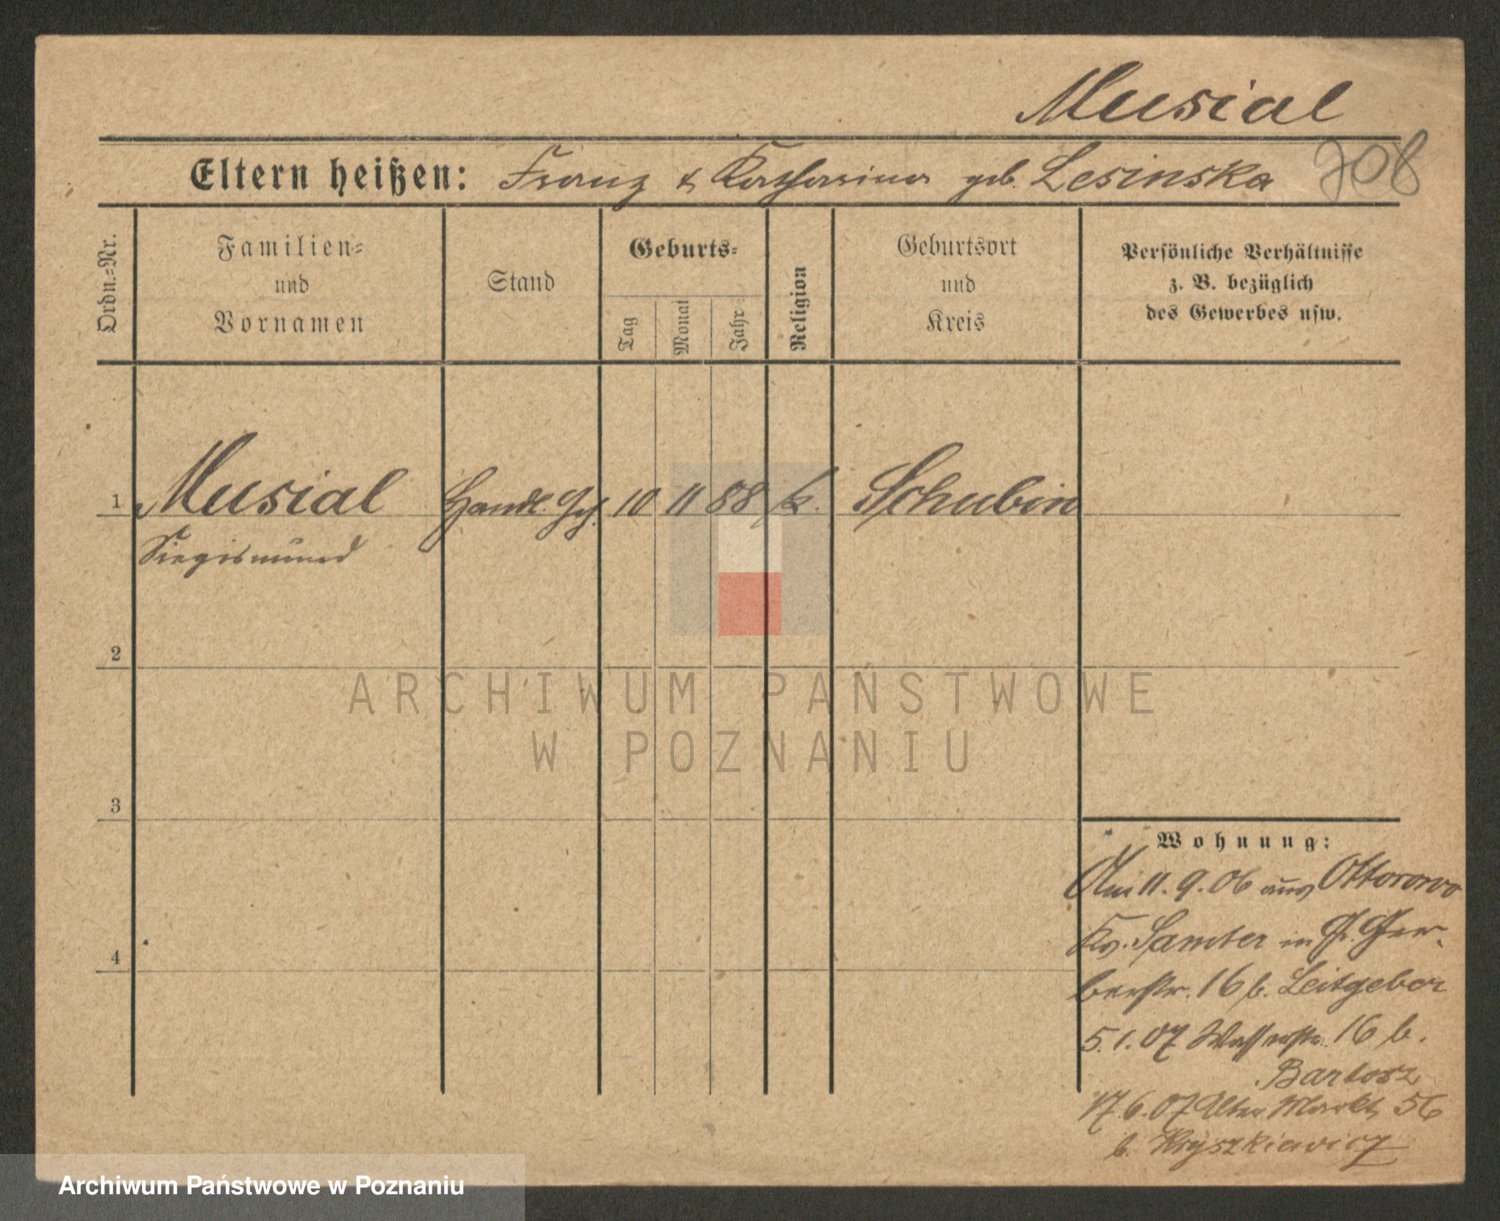 Musial
Eltern heißen: Franz & Katharina geb. Lesinska 708
Ordn.-Nr.
Familien-
und
Vornamen
Stand
Geburts-
Tag
Monat
Jahr
Religion
Geburtsort
und
Kreis
Persönliche Verhältnisse
z. B. bezüglich
des Gewerbes usw.
1 Musial Handl. Gh. 10 11 88 k. Schubin
Siegismund
2
3
4
ARCHIWUM PAŃSTWOWE
W POZNANIU
Wohnung:
Am 11.9.06 aus Ottorowo
Kr. Samter in Gr. Ger-
berstr. 16 b. Leitgeber
5.1.07 Wasserstr. 16 b.
Bartosz
17.6.07 Alter Markt 56
b. Kryszkiewicz
Archiwum Państwowe w Poznaniu